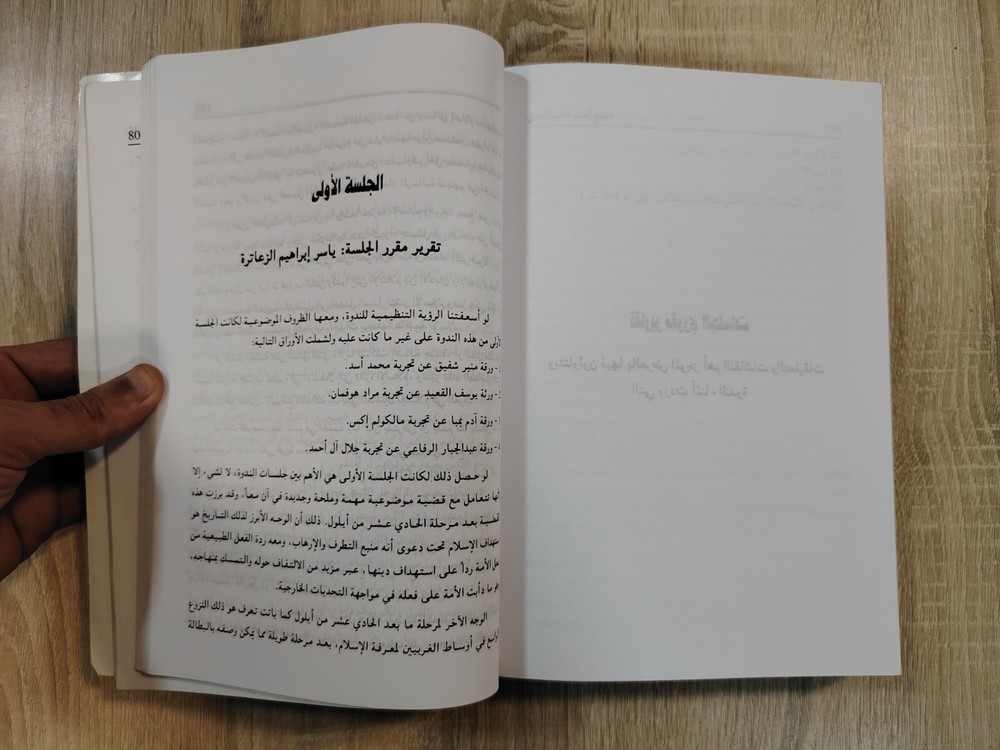 80
الجلسة الأولى
تقرير مقرر الجلسة: ياسر إبراهيم الزعاترة
لو أسعفتنا الرؤية التنظيمية للندوة، ومعها الظروف الموضوعية لكانت الجلسة
الأولى من هذه الندوة على غير ما كانت عليه ولشملت الأوراق التالية:
- ورقة منير شفيق عن تجربة محمد أسد.
- ورقة يوسف القعيد عن تجربة مراد هوفمان.
- ورقة آدم بمبا عن تجربة مالكولم إكس.
- ورقة عبدالجبار الرفاعي عن تجربة جلال آل أحمد.
لو حصل ذلك لكانت الجلسة الأولى هي الأهم بين جلسات الندوة، لا لشيء إلا
أنها نتعامل مع قضية موضوعية مهمة وملحة وجديدة في آن معاً، وقد برزت هذه
القضية بعد مرحلة الحادي عشر من أيلول. ذلك أن الوجه الأبرز لذلك التاريخ هو
استهداف الإسلام تحت دعوى أنه منبع التطرف والإرهاب، ومعه ردة الفعل الطبيعية من
الأمة رداً على استهداف دينها، عبر مزيد من الالتفاف حوله والتمسك بمنهاجه،
هو ما دأبت الأمة على فعله في مواجهة التحديات الخارجية.
الوجه الآخر لمرحلة ما بعد الحادي عشر من أيلول كما باتت تعرف هو ذلك النزوع
الواسع في أوساط الغربيين لمعرفة الإسلام، بعد مرحلة طويلة مما يمكن وصفه بالبطالة
تقارير مقرري الجلسات
ويتناولون فيها بالعرض الموجز أهم النقاشات والتعليقات
التي وردت أثناء الندوة